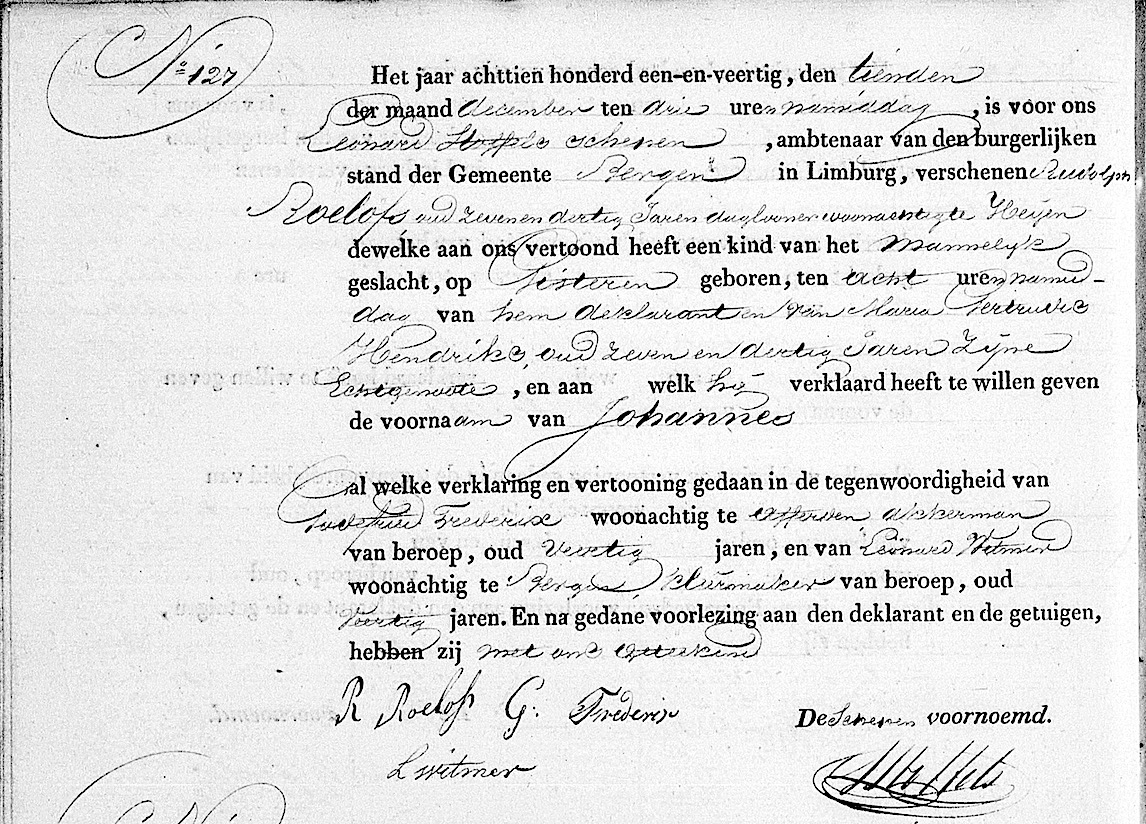 No 127
Het jaar achttien honderd een-en-veertig, den tienden
der maand december ten drie uren namiddag, is voor ons
Leonard Stoffels schepen, ambtenaar van den burgerlijken
stand der Gemeente Bergen in Limburg, verschenen Rudolph
Roelofs oud zeven en dertig Jaren daglooner woonachtig te Heijen
dewelke aan ons vertoond heeft een kind van het mannelyk
geslacht, op Gisteren geboren, ten acht uren namid-
dag van hem deklarant en van Maria Gertrudis
Hendriks, oud zeven en dertig Jaren Zijne
Echtgenoote, en aan welk hij verklaard heeft te willen geven
de voornaam van Johannes
al welke verklaring en vertooning gedaan in de tegenwoordigheid van
Frederix woonachtig te Afferden akkerman
van beroep, oud veertig jaren, en van Leonard Witmer
woonachtig te Bergen kleermaker van beroep, oud
Veertig jaren. En na gedane voorlezing aan den deklarant en de getuigen,
hebben zij met ons getekend
R Roelofs G. Frederix
De Schepen voornoemd.
L witmer
Stoffels